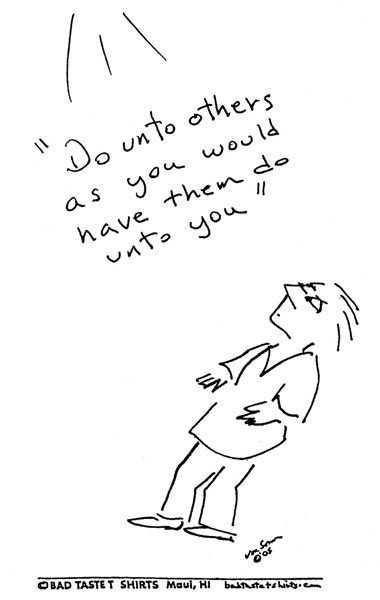 "Do unto others
as you would
have them do
unto you"
©'05
©BAD TASTE T SHIRTS Maui, HI badtastetshirts.com